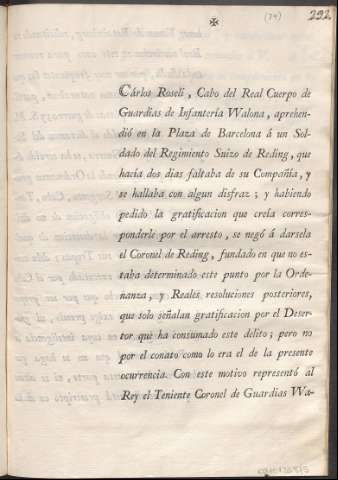 ✠
(74) 292
Cárlos Roselí, Cabo del Real Cuerpo de
Guardias de Infantería Walona, aprehen-
dió en la Plaza de Barcelona á un Sol-
dado del Regimiento Suizo de Reding, que
hacía dos dias faltaba de su Compañía, y
se hallaba con algun disfraz; y habiendo
pedido la gratificacion que creía corres-
ponderle por el arresto, se negó á darsela
el Coronel de Reding, fundado en que no es-
taba determinado este punto por la Orde-
nanza, y Reales resoluciones posteriores,
que solo señalan gratificacion por el Deser-
tor que ha consumado este delito; pero no
por el conato como lo era el de la presente
ocurrencia. Con este motivo representó al
Rey el Teniente Coronel de Guardias Wa-